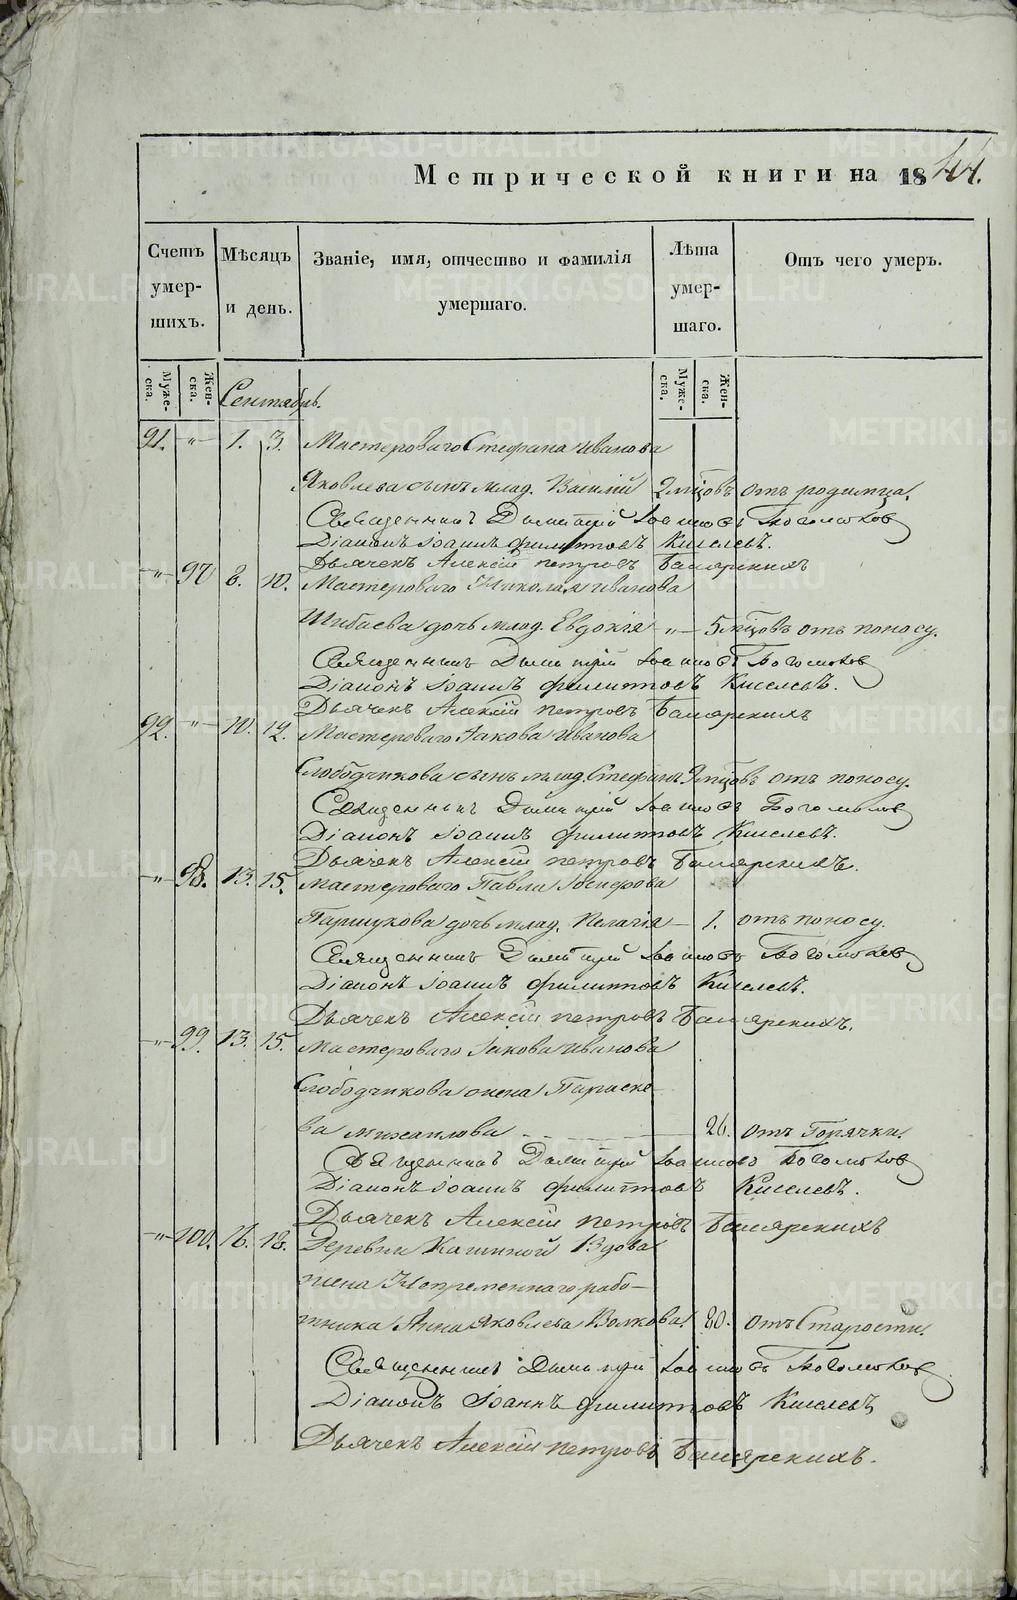 Метрической книги на 1844.
Счетъ умер-шихъ.
Мѣсяцъ и день.
Званіе, имя, отчество и фамилія умершаго.
Лѣта умер-шаго.
Отъ чего умеръ.
Муже-ска.
Жен-ска.
Муже-ска.
Жен-ска.
Сентябрь.
91. „ 1. 3. Мастероваго Стефана Иванова
Яковлева сынъ млад. Василій 2 мцовъ отъ родимца.
Священникъ Димитрій Іоанновъ Боголюбов
Діаконъ Іоаннъ Филипповъ Киселевъ.
Дьячекъ Алексій Петровъ
„ 97 8. 10. Мастероваго Николая Иванова
Шибаева дочь млад. Евдокія „ 5 мцовъ отъ поносу.
Священникъ Димитрій Іоанновъ Боголюбов
Діаконъ Іоаннъ Филипповъ Киселевъ.
Дьячекъ Алексій Петровъ
92. „ 10. 12. Мастероваго Іакова Иванова
Слободчикова сынъ млад. Стефанъ 9 мцовъ отъ поносу.
Священникъ Димитрій Іоанновъ Боголюбов
Діаконъ Іоаннъ Филипповъ Киселевъ.
Дьячекъ Алексій Петровъ
„ 98. 13. 15. Мастероваго Павла
Паршукова дочь млад. Пелагія 1. отъ поносу.
Священникъ Димитрій Іоанновъ Боголюбов
Діаконъ Іоаннъ Филипповъ Киселевъ.
Дьячекъ Алексій Петровъ
„ 99. 13. 15. Мастероваго Іакова Иванова
Слободчикова жена Параске-
ва Михаилова 26. отъ Горячки.
Священникъ Димитрій Іоанновъ Боголюбов
Діаконъ Іоаннъ Филипповъ Киселевъ.
Дьячекъ Алексій Петровъ
„ 100. 16. 18. Деревни Кашиной Вдова
жена Непременнаго рабо-
тника Анна Яковлева Волкова. 80. отъ Старости.
Священникъ Димитрій Іоанновъ Боголюбов
Діаконъ Іоаннъ Филипповъ Киселевъ
Дьячекъ Алексій Петровъ
METRIKI.GASO-URAL.RU